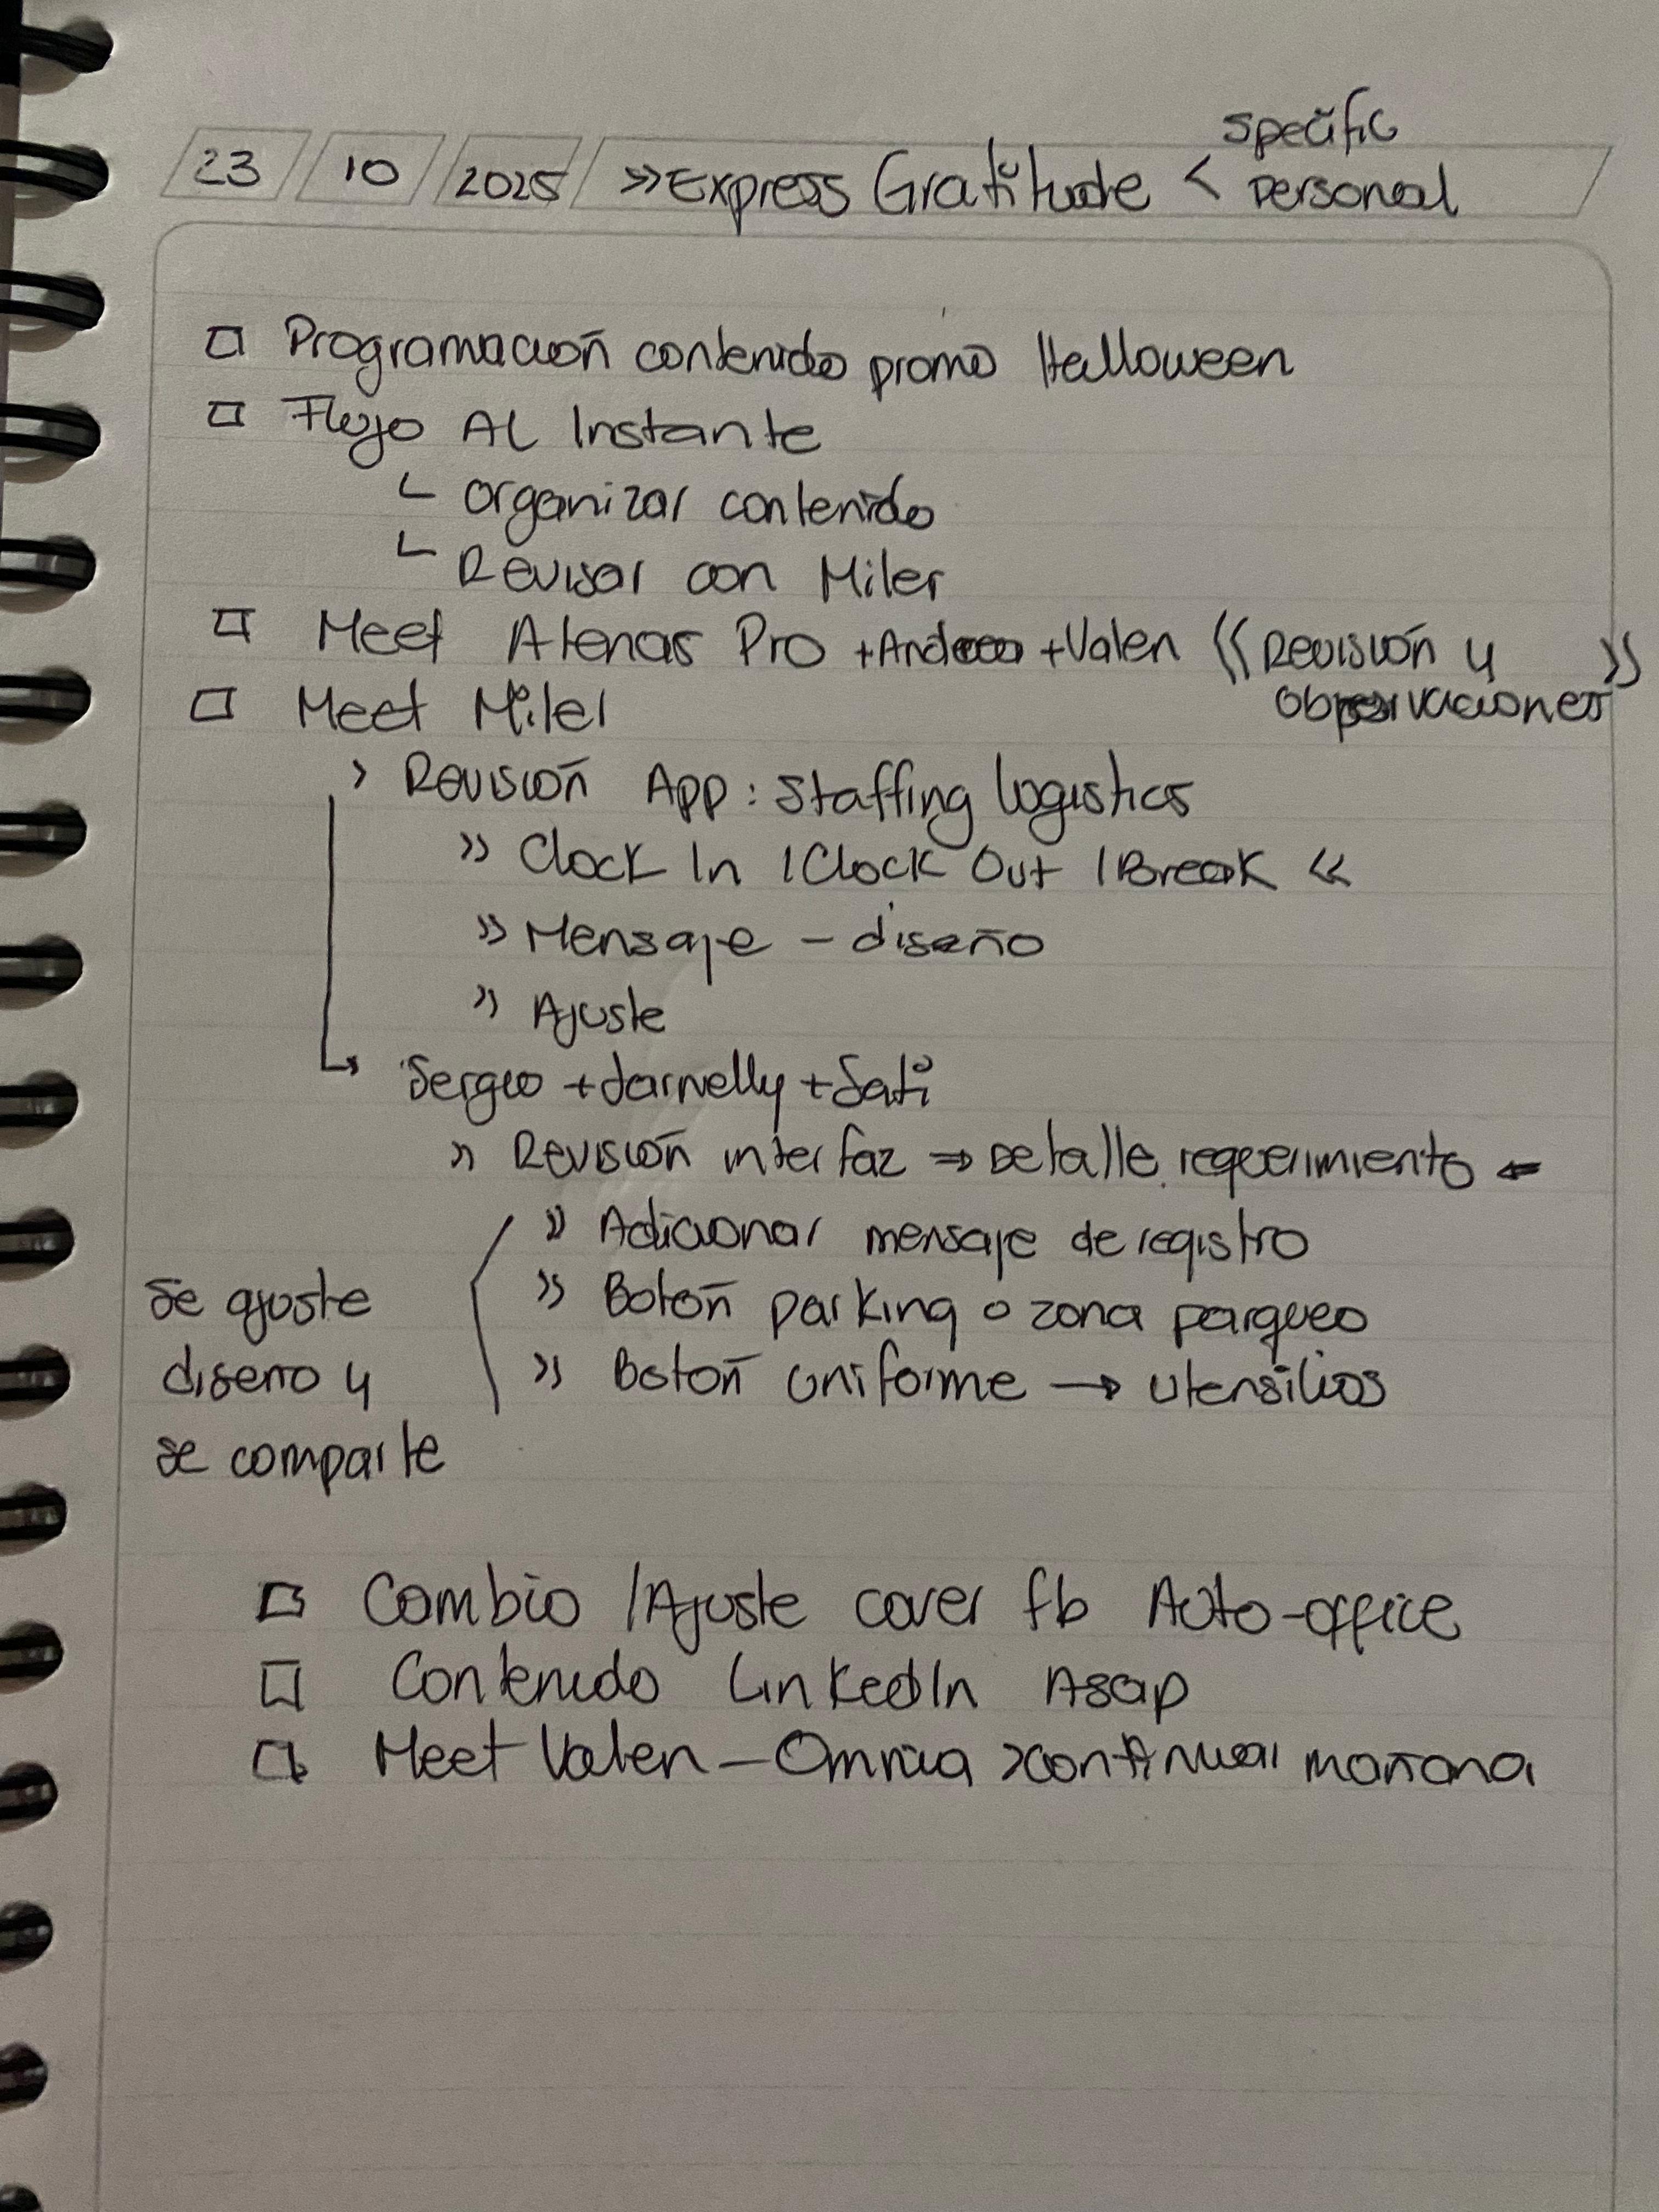 23 10 2025 >> Express Gratitude < specific personal
□ Programación contenido promo Halloween
□ Flujo AL Instante
└ organizar contenido
└ Revisar con Miler
□ Meet Atenas Pro + Andrea + Valen << Revisión y observaciones >>
□ Meet Miler
> Revisión App: Staffing logistics
>> Clock In / Clock Out / Break <<
>> Mensaje – diseño
>> Ajuste
↳ Sergio + Jarnelly + Sati
>> Revisión interfaz ⇒ Detalle requerimiento ⇐
>> Adicionar mensaje de registro
>> Botón parking o zona parqueo
>> Botón uniforme → utensilios
Se ajuste
diseño y
se comparte
□ Cambio / Ajuste cover fb Auto-office
□ Contenido LinkedIn Asap
□ Meet Valen – Omnia > continuar mañana